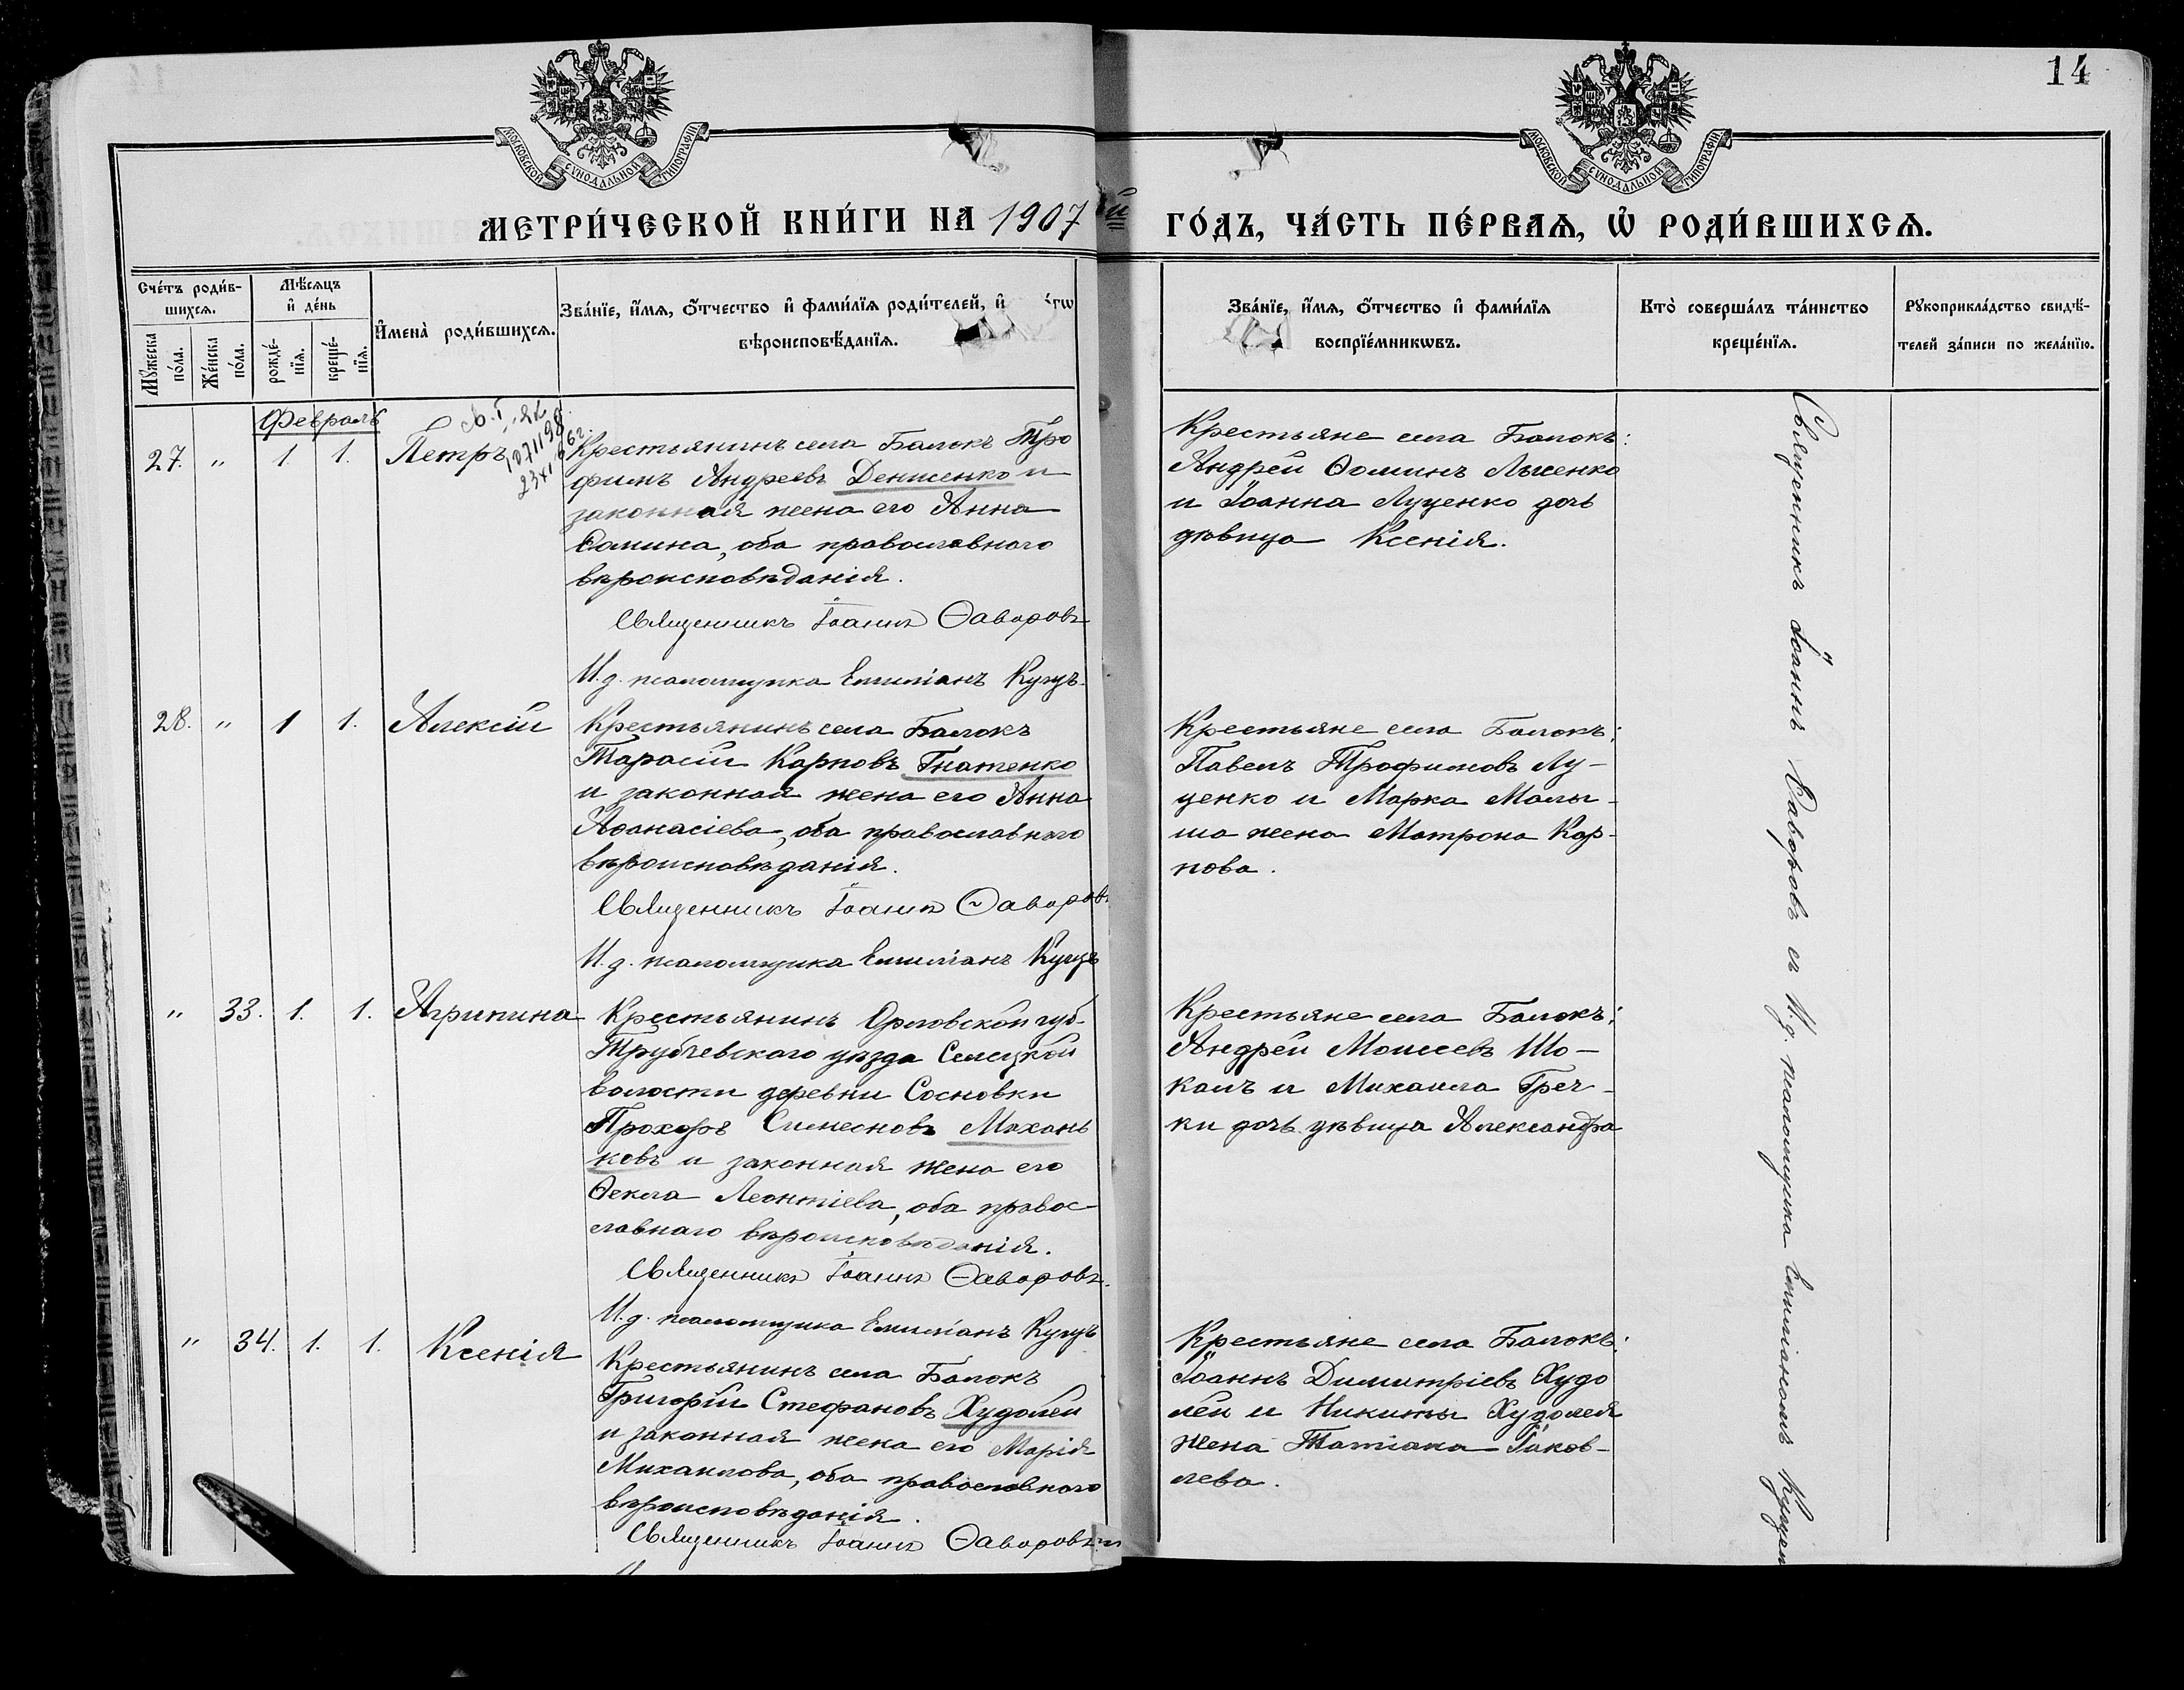 14
МОСКОВСКОЙ СѴНОДАЛЬНОЙ ТИПОГРАФІИ
МОСКОВСКОЙ СѴНОДАЛЬНОЙ ТИПОГРАФІИ
МЕТРИ́ЧЕСКОЙ КНИ́ГИ НА 1907 й ГО́ДЪ, ЧА́СТЬ ПЕ́РВАѦ, Ѽ РОДИ́ВШИХСѦ.
Счéтъ роди́в-
шихсѧ.
Мꙋ́жеска
по́ла.
Же́нска
по́ла.
Мѣ́сѧцъ
и҆ де́нь
рожде́-
нїѧ.
креще́-
нїѧ.
И҆мена̀ роди́вшихсѧ.
Зва́нїе, и҆́мѧ, ѻ҆́тчество и҆ фами́лїѧ роди́телей, и҆
вѣроисповѣ́данїѧ.
Зва́нїе, и҆́мѧ, ѻ҆́тчество и҆ фами́лїѧ
воспрїе́мникѡвъ.
Кто̀ соверша́лъ та́инство
креще́нїѧ.
Рꙋкоприкла́дство свидѣ́-
телей за́писи по жела́нїю.
Февраль
27. " 1. 1. Петръ
Крестьянинъ села Балокъ Тро
фимъ Андреевъ Денисенко и
законная жена его Анна
Ѳомина, оба православнаго
вѣроисповѣданія.
Священникъ Іоаннъ Ѳаворовъ
И.д. псаломщика Емиліанъ Куцъ.
Крестьяне села Балокъ:
Андрей Ѳоминъ Лысенко
и Іоанна Луценко дочь
дѣвица Ксенія.
28. " 1 1. Алексій
Крестьянинъ села Балокъ
Тарасій Карповъ Гнатенко
и законная жена его Анна
Аѳанасіева, оба православнаго
вѣроисповѣданія.
Священникъ Іоаннъ Ѳаворовъ
И.д. псаломщика Емиліанъ Куцъ
Крестьяне села Балокъ:
Павелъ Трофимовъ Лу-
ценко и Марка Малы-
ша жена Матрона Кар-
пова.
" 33. 1. 1. Агрипина
Крестьянинъ Орловской губ.
Трубчевскаго уѣзда Селецкой
волости деревни Сосновки
Прохоръ Симеоновъ Махонь
ковъ и законная жена его
Ѳекла Леонтіева, оба правос-
лавнаго вѣроисповѣданія.
Священникъ Іоаннъ Ѳаворовъ.
И.д. псаломщика Емиліанъ Куцъ
Крестьяне села Балокъ:
Андрей Моисеевъ Шо-
калъ и Михаила Греч-
ки дочь дѣвица Александра
" 34. 1. 1. Ксенія
Крестьянинъ села Балокъ
Григорій Стефановъ Худолей
и законная жена его Марія
Михаилова, оба православнаго
вѣроисповѣданія.
Священникъ Іоаннъ Ѳаворовъ
Крестьяне села Балокъ:
Іоаннъ Димитріевъ Худо
лей и Никиты Худолея
жена Татіана Іаков-
лева.
Священникъ Іоаннъ Ѳаворовъ съ И.д. псаломщика Емиліаномъ